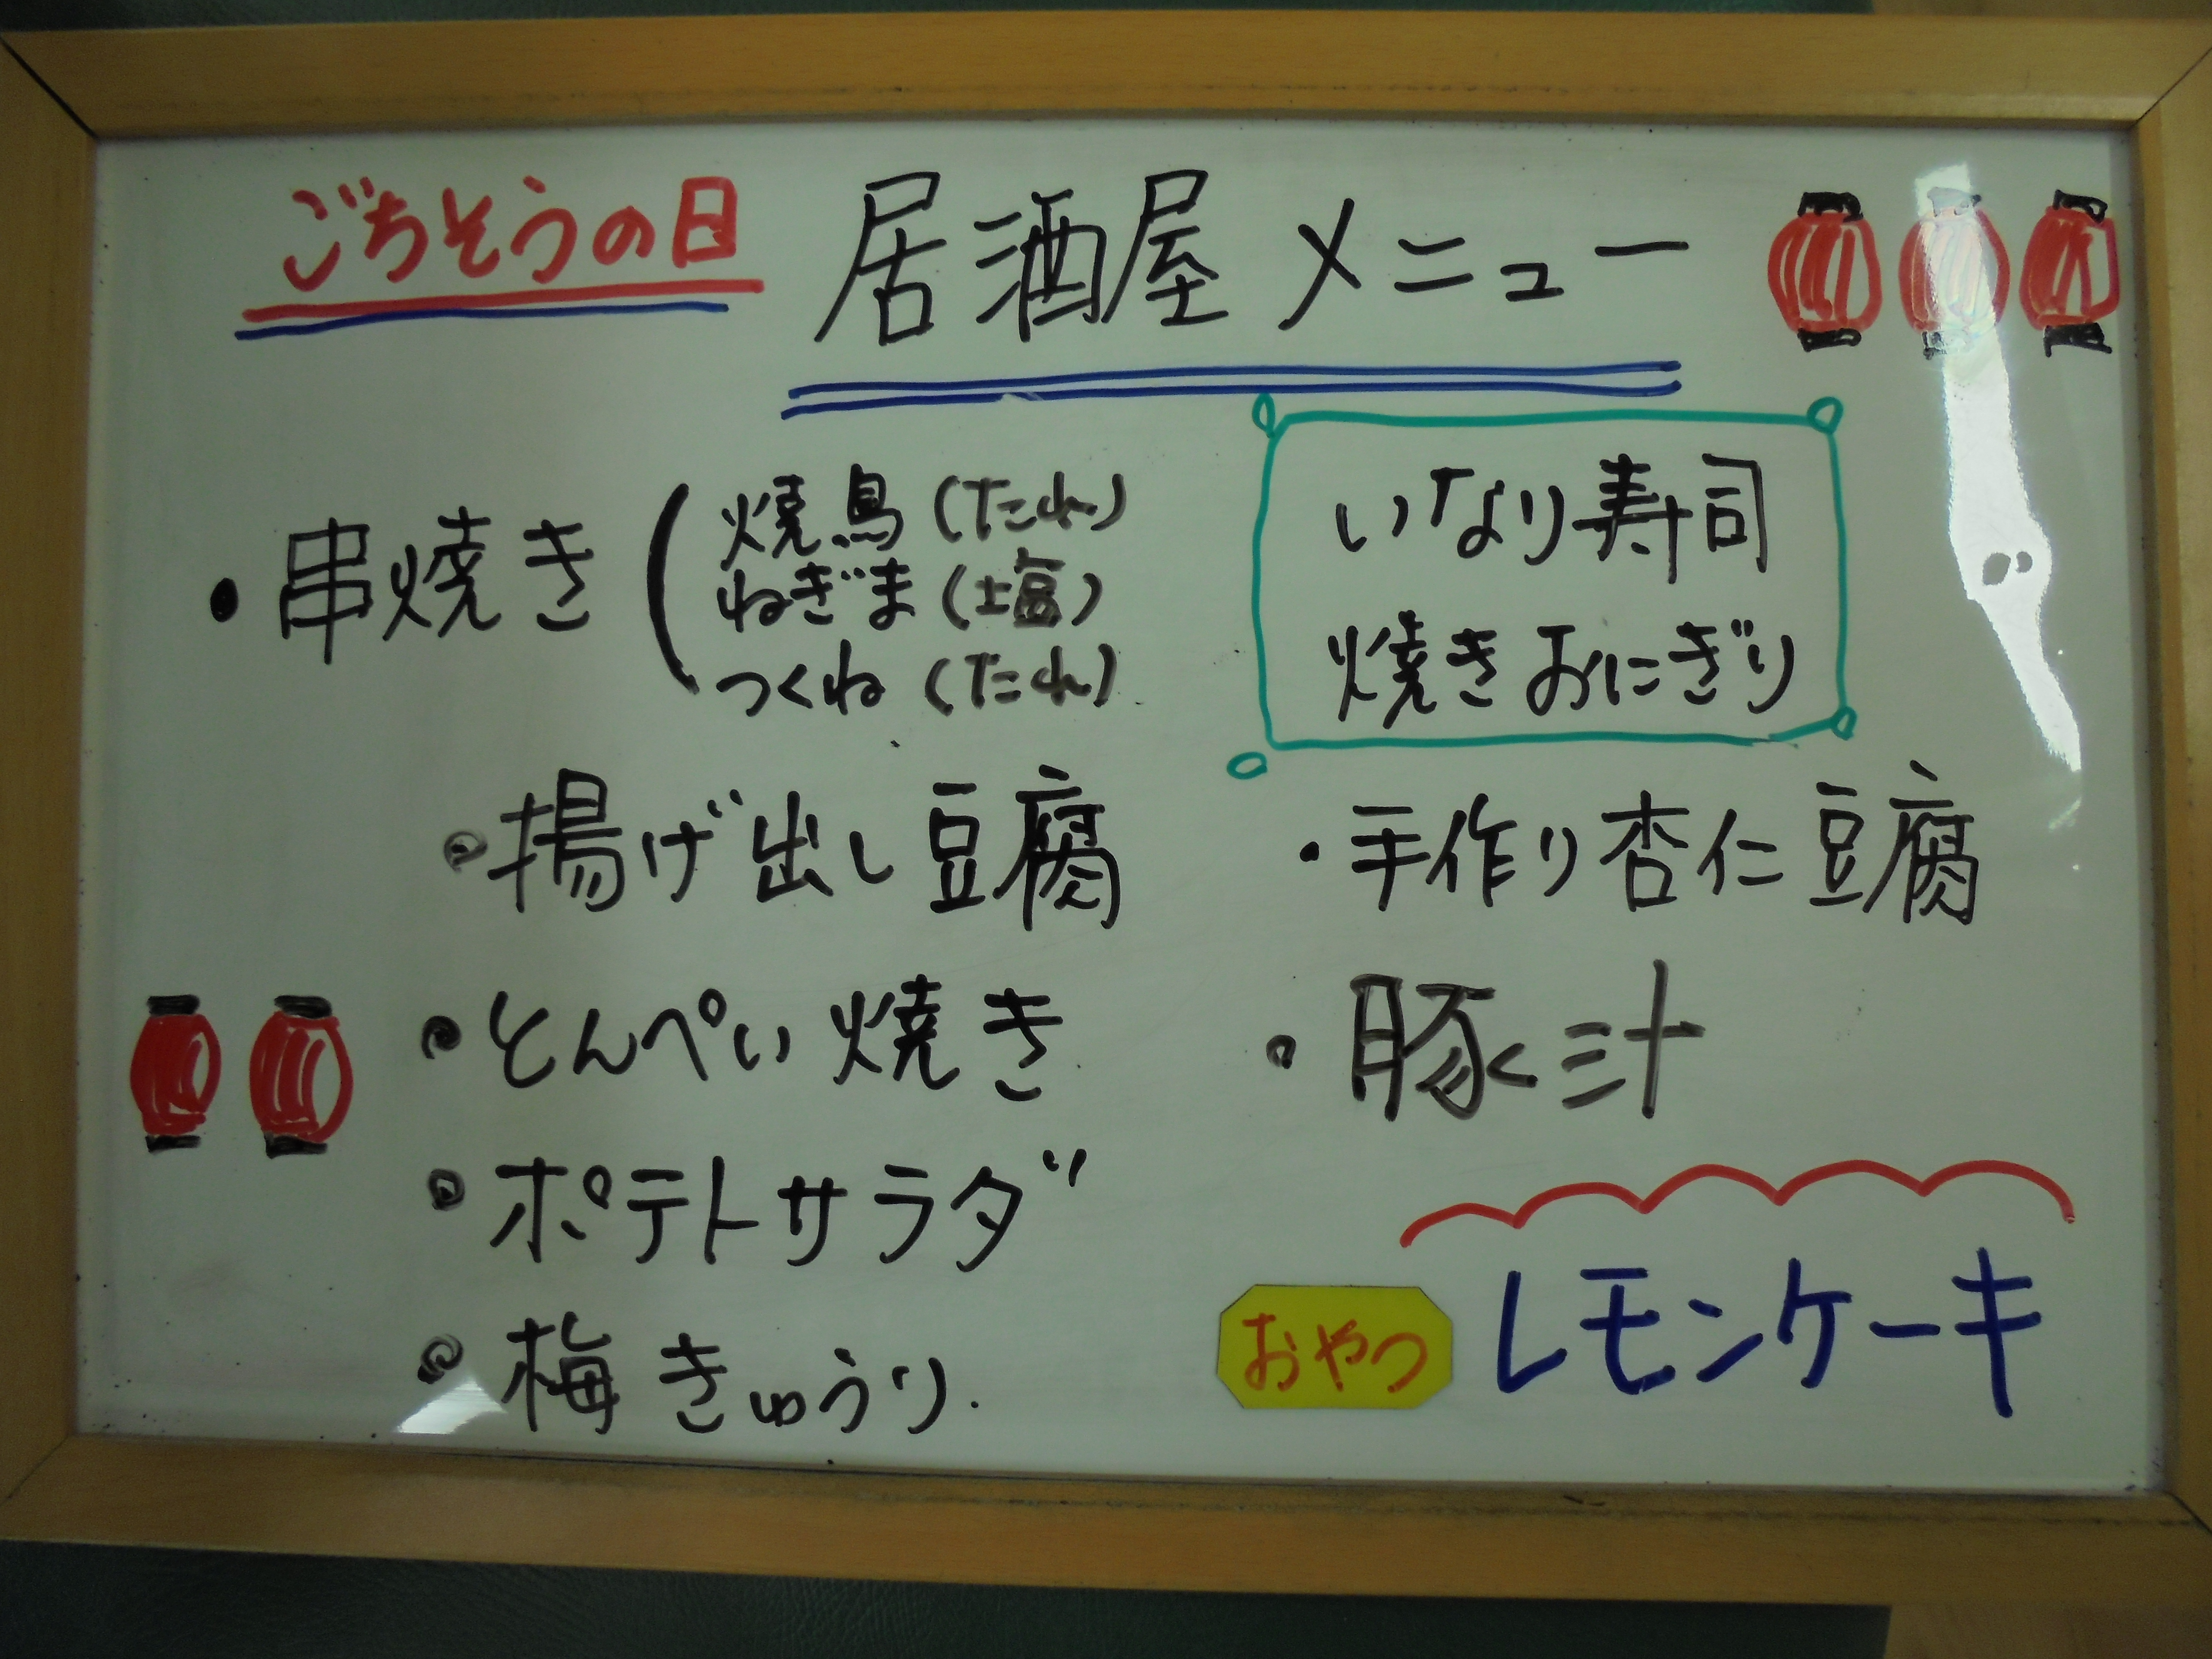 ごちそうの日 居酒屋メニュー
・串焼き(焼鳥(たれ)
ねぎま(塩)
つくね(たれ)
いなり寿司
焼きおにぎり
・揚げ出し豆腐
・とんぺい焼き
・ポテトサラダ
・梅きゅうり.
・手作り杏仁豆腐
・豚汁
おやつ レモンケーキ